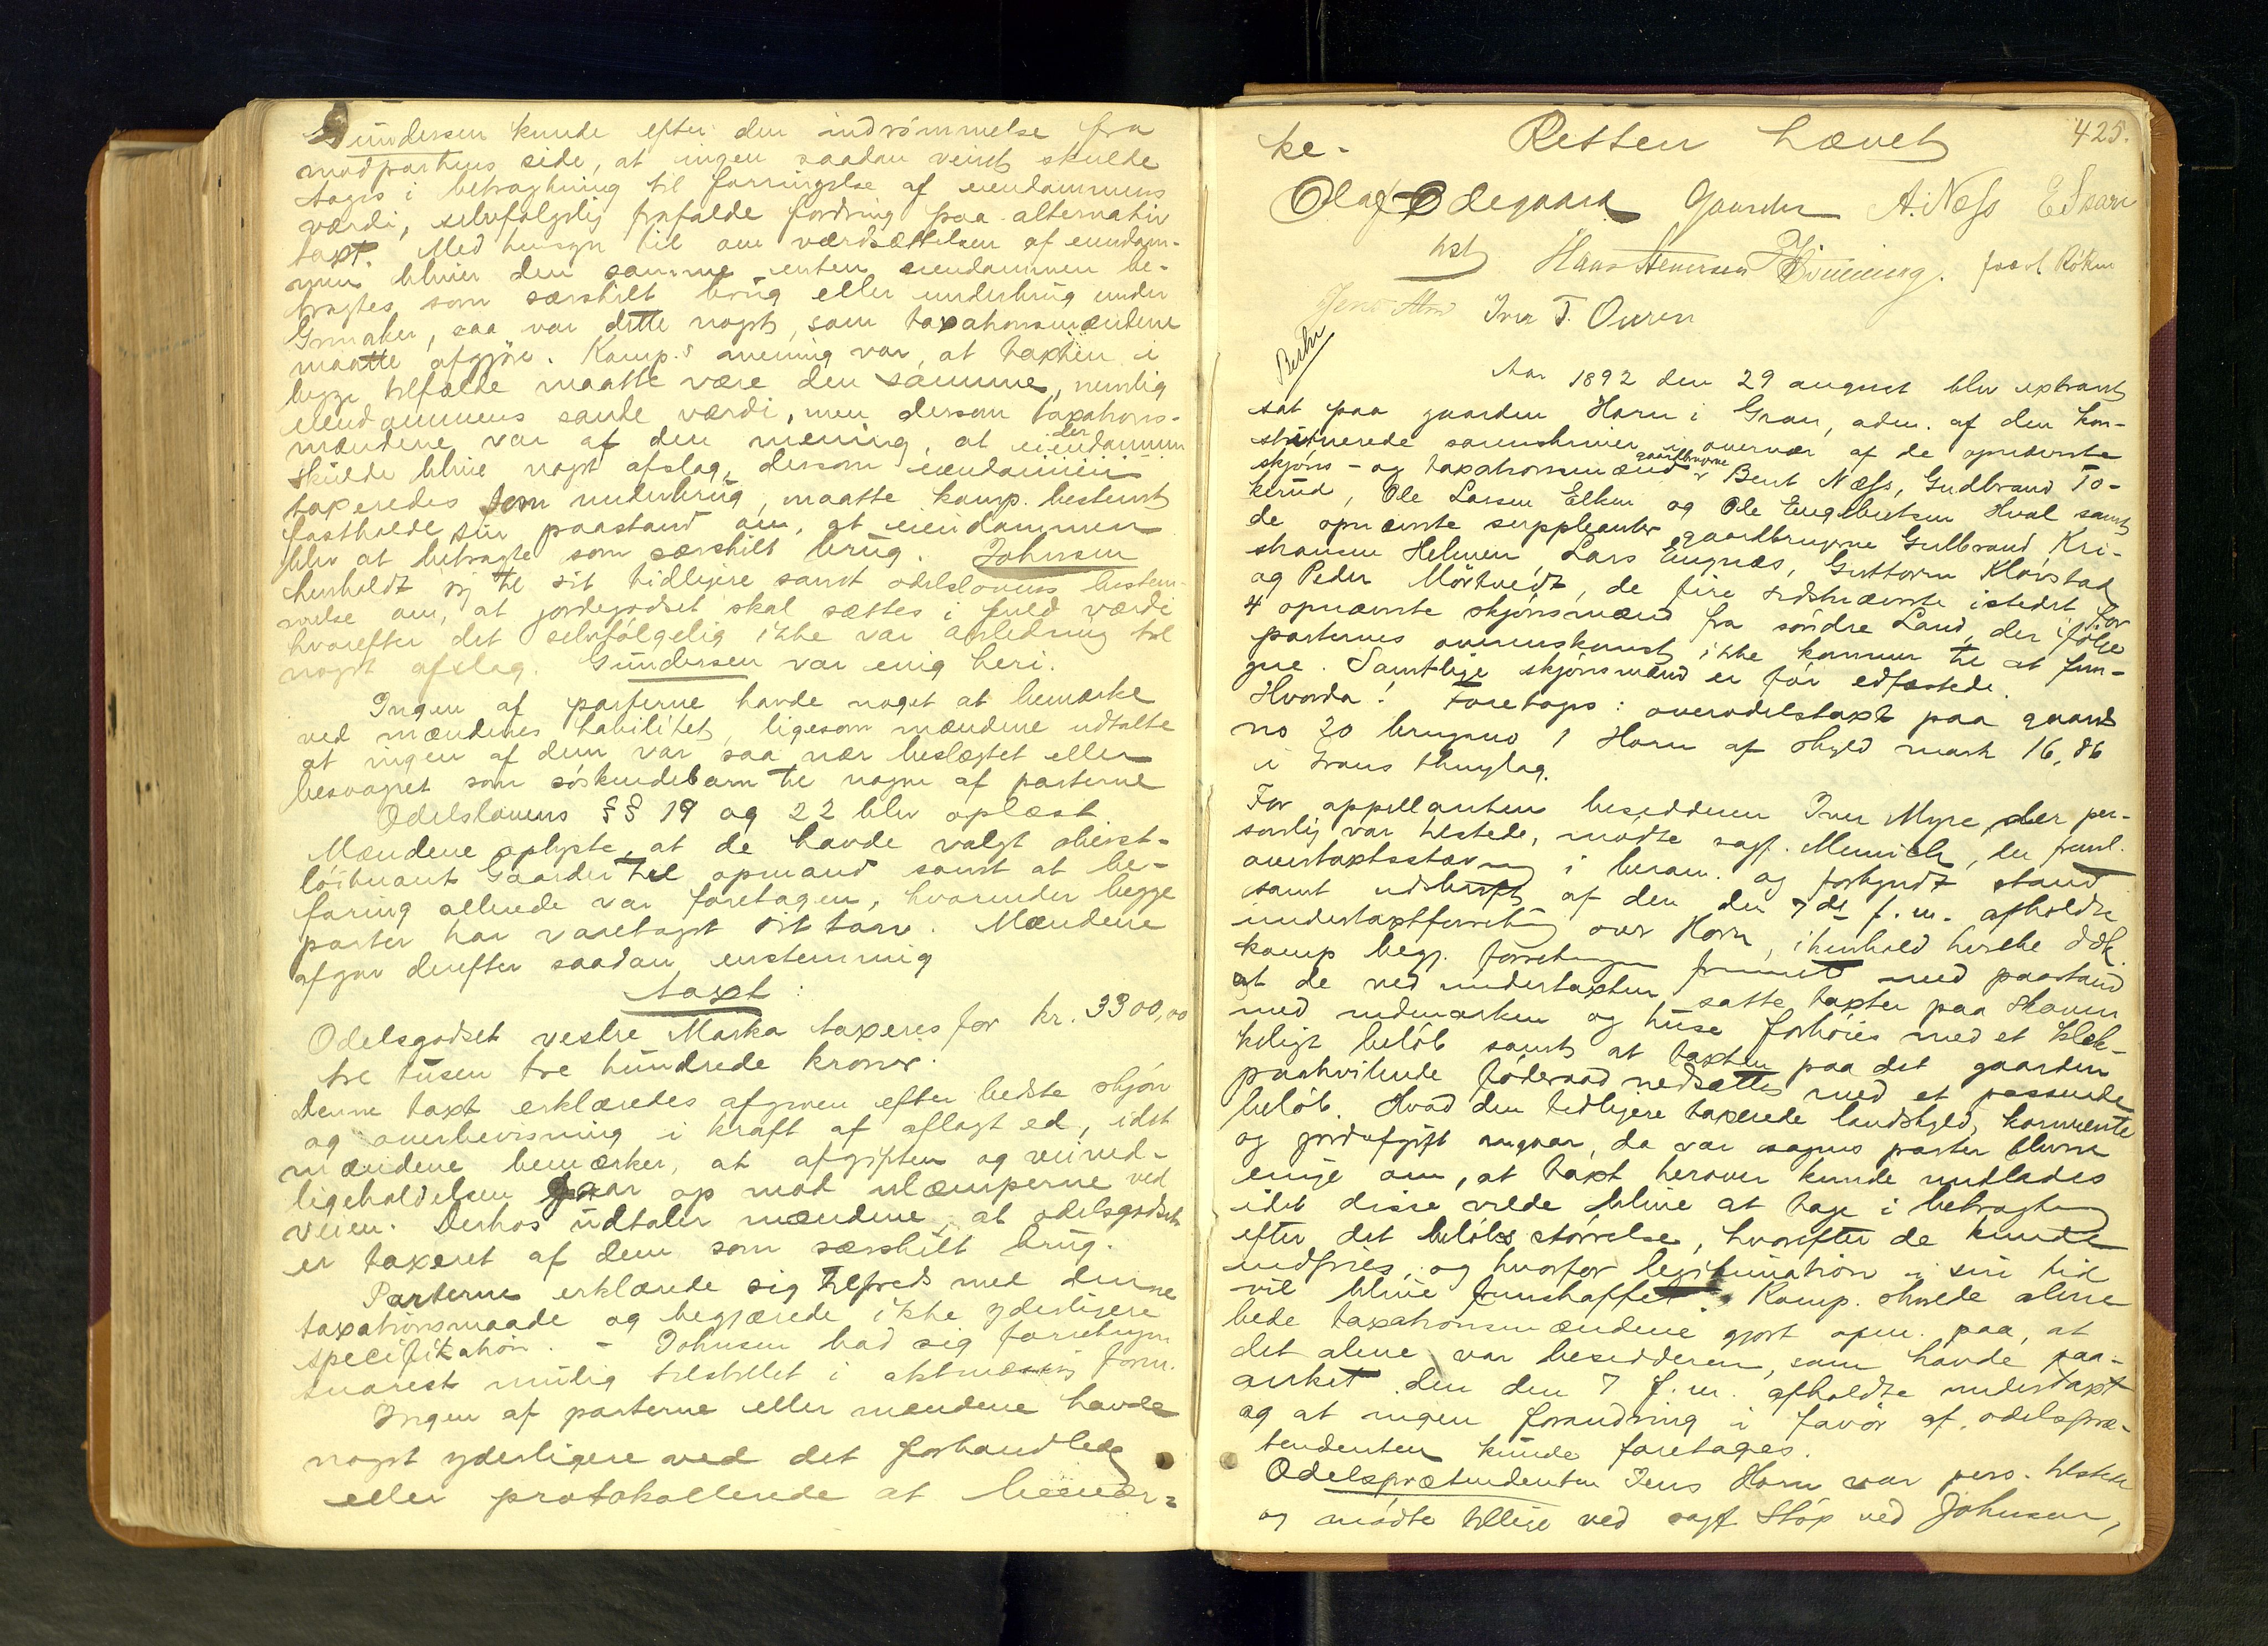 Gundersen kunde efter den indrømmelse fra
modpartens side, at ingen saadan veiret skulde
tages i betragtning til forringelse af eiendommens
værdi, selvfølgelig frafalde fordring paa alternativ
taxt. Med hensyn til om værdsættelsen af eiendom-
men bliver den samme enten eiendommen be-
tragtes som særskilt brug eller underbrug under
Grinaker, saa var dette noget, som taxationsmændene
maatte afgjøre. Komp.s mening var, at taxten i
begge tilfælde maatte være den samme, nemlig
eiendommens sande værdi, men dersom taxations-
mændene var af den mening, at der eiendommen
skulde blive noget afslag, dersom eiendommen
taxeredes som underbrug, maatte komp. bestemt
fastholde sin paastand om, at eiendommen
blev at betragte som særskilt brug. Johnsen
henholdt sig til sit tidligere samt odelslovens bestem-
melse om, at jordegodset skal sættes i fuld værdi
hvorefter det selvfølgelig ikke var anledning til
noget afslag. Gundersen var enig heri.
Ingen af parterne havde noget at bemærke
ved mændenes habilitet, ligesom mændene udtalte
at ingen af dem var saa nær beslægtet eller
besvogret som søskendebarn til nogen af parterne
Odelslovens §§ 19 og 22 blev oplæst
Mændene oplyste, at de havde valgt oberst-
løitnant Gaarder til opmand samt at be-
faring allerede var foretagen, hvorunder begge
parter har varetaget sit tarv. Mændene
afgav derefter saadan enstemmig
taxt:
Odelsgodset vestre Marka taxeres for kr. 3300,00
tre tusen tre hundrede kroner.
Denne taxt erklæredes afgiven efter bedste skjøn
og overbevisning i kraft af aflagt ed, idet
mændene bemærker, at afgiften og veived-
ligeholdelsen gaar op mod ulæmperne ved
veien. Derhos udtaler mændene, at odelsgodset
er taxeret af dem som særskilt brug.
Parterne erklærede sig tilfreds med denne
taxationsmaade og begjærede ikke yderligere
specifikation. - Johnsen bad sig forretningen
snarest mulig tilstillet i aktmæssig form.
Ingen af parterne eller mændene havde
noget yderligere ved det forhandlede
eller protokollerede at bemær-
425.
ke. Retten hævet
Olaf Ødegaard Gaarder A. Næss E Skari
Hans Henersen
Iver T. Onren
Aar 1892 den 29 august blev extraret
sat paa gaarden Horn i Gran, adm. af den kon-
stituerede sorenskriver i overvær af de opnævnte
skjøns- og taxationsmænd gaardbrugerne Bent Næss, Gudbrand To-
kerud, Ole Larsen Elken og Ole Engebretsen Hval samt
de opnævnte suppleanter gaardbrugerne Gulbrand Kri-
stiansen Helmen Lars Engnæs, Guttorm Kløvstad
og Peder Mörtvedt, de fire sidstnævnte istedet for
4 opnævnte skjønsmænd fra søndre Land, der ifølge
parternes overenskomst ikke kommer til at fun-
gere. Samtlige skjønsmænd er før edfæstede.
Hvorda! Foretoges: overodelstaxt paa gaards
no 20 brugsno 1 Horn af skyld mark 16,86
i Grans thinglag.
For appellanten besidderen Iver Myre der per-
sonlig var tilstede, mødte sagf. Munich, der freml.
overtaxtsstævning i beram. og forkyndt stand
samt udskrift af den den 7de f.m. afholdte
undertaxtforretning over Horn, ihenhold hertil
komp begj. forretningen fremmet med paastand
at de ved undertaxten satte taxter paa Haven
med udmarken og huse forhøies med et klæk-
keligt beløb samt at taxten paa det gaarden
paahvilende føderaad nedsættes med et passende
beløb. Hvad den tidligere taxerede landskyld, kornrente
og jordafgift angaar, da var sagens parter blevne
enige om, at taxt herover kunde undlades
idet disse vilde blive at tage i betragtning
efter det beløbs størrelse, hvorefter de kunde
indfries, og hvorfor legitimation i sin tid
vil blive fremskaffet. Komp. skulde alene
bede taxationsmændene gjort opm. paa, at
det alene var besidderen, som havde paa-
anket den den 7 f.m. afholdte undertaxt
og at ingen forandring i favør af odelspræ-
tendenten kunde foretages.
Odelsprætendenten Jens Horn var pers. tilstede
og mødte tillige ved sagf Støp ved Johnsen,